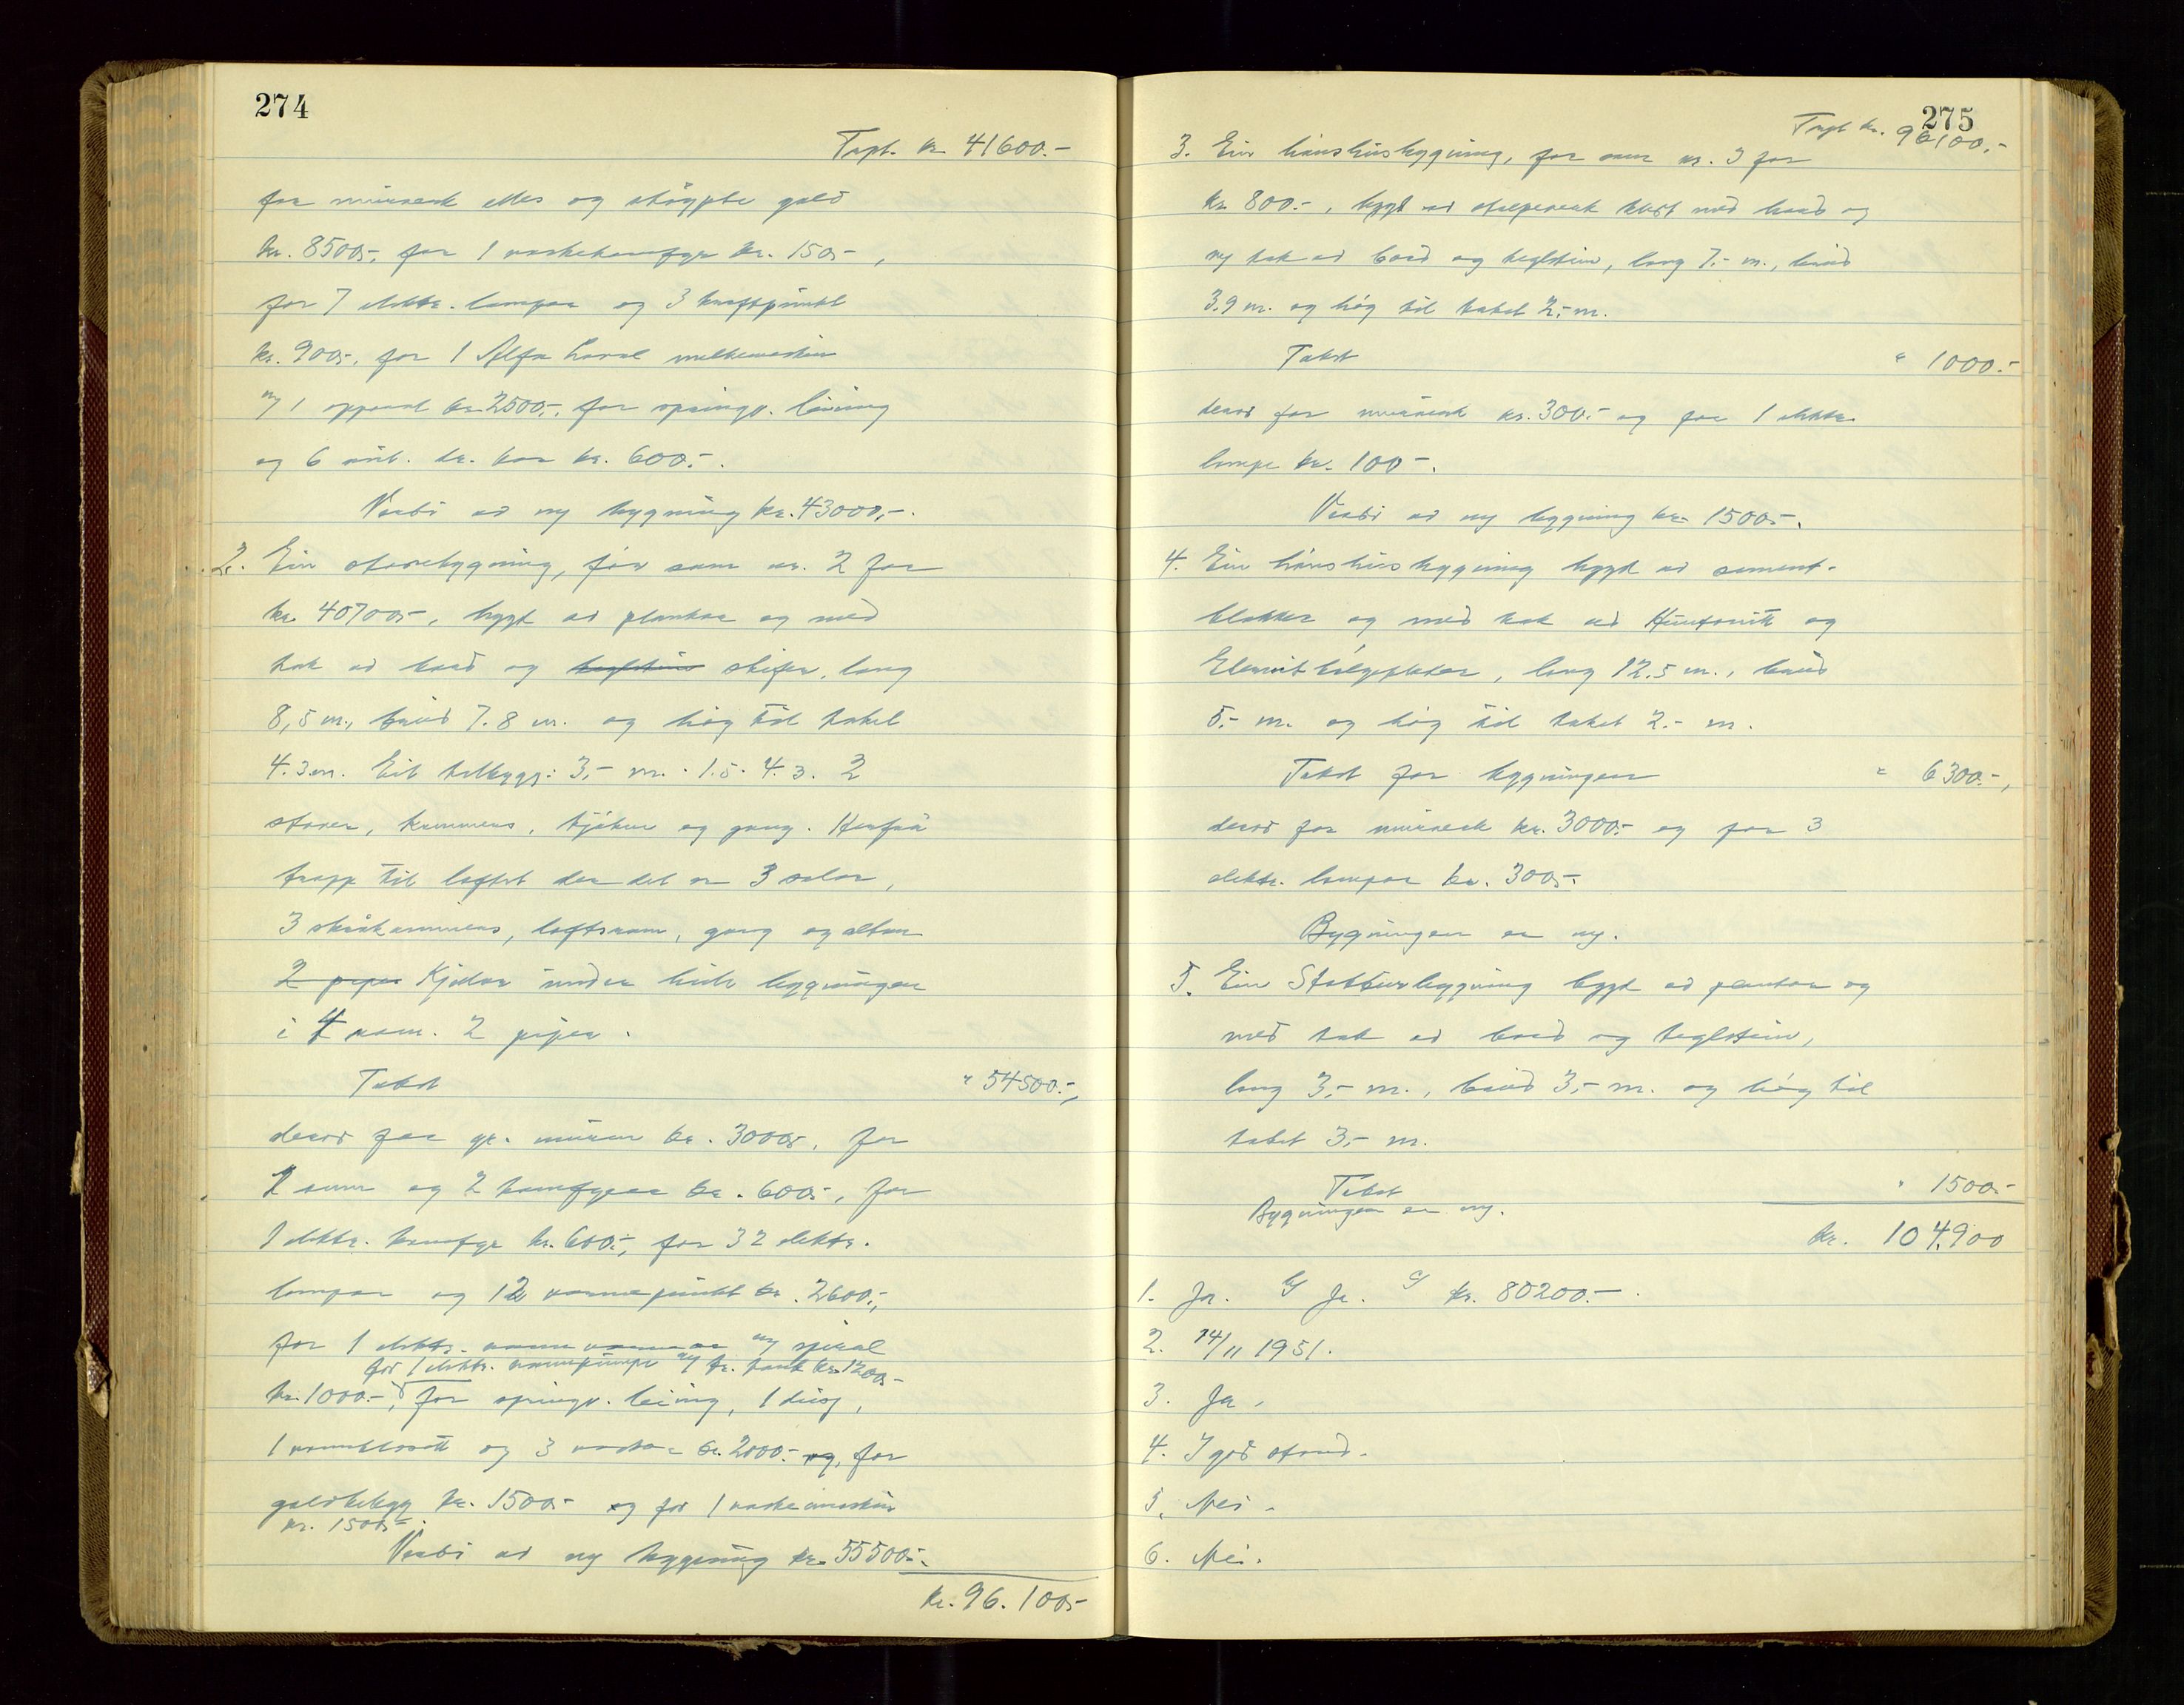 274
Tapt. kr 41600.-
for murverk elles og støypte golv
kr. 8500,-, for 1 vaskekomfyr kr. 150,-,
for 7 elektr. lampor og 3 kraftpunkt
kr. 900,-, for 1 Alfa Laval melkemaskin
og 1 apparat kr. 2500,-, for springv. leining
og 6 kar kr. 600,-.
Verdi av ny bygning kr. 43000,-.
2. Ein stovebygning, før som nr. 2 for
kr. 40700,-, bygt av plankar og med
tak av bord og teglstein skifer, lang
8,5 m., breid 7.8 m. og høg til taket
4.3 m. Eit tilbygg: 3,- m. · 1.5 · 4.3. 3
stover, kammers, kjøken og gang. Herfrå
trapp til loftet der det er 3 salar,
3 skråkammers, loftsrom, gang og altan
2 piper Kjellar under heile bygningen
i 4 rom. 2 piper.
Takst " 54500.-,
derav for gr. muren kr. 3000,-, for
1 omn og 2 komfyrar kr. 600,-, for
1 elektr. komfyr kr. 600,-, for 32 elektr.
lampor og 12 varmepunkt kr. 2600.-,
for 1 elektr. og spiral
for 1 elektr. varmepumpe og tank kr. 1200,-
kr. 1000.-, for springv. leining, 1 dusj,
1 vannklosett og 3 vaskar kr. 2000.- og, for
golvbelegg kr. 1500,- og for 1 vaskemaskin
kr. 1500,-.
Verdi av ny bygning kr. 55500,-.
kr. 96.100,-
275
Tapt kr. 96100.-
3. Ein hønshusbygning, før som nr. 3 for
kr. 800.-, bygt av stolpeverk kledt med bord og
og tak av bord og teglstein, lang 7,- m., breid
3.9 m. og høg til taket 2,- m.
Takst " 1000.-
derav for murverk kr. 300.- og for 1 elektr.
lampe kr. 100,-.
Verdi av ny bygning kr. 1500,-.
4. Ein hønshusbygning bygd av sement-
blokker og med tak av Huntonitt og
Eternitbølgeplater, lang 12.5 m., breid
5,- m. og høg til taket 2.- m.
Takst for bygningen " 6300.-,
derav for murverk kr. 3000.- og for 3
elektr. lampor kr. 300,-.
Bygningen er ny.
5. Ein Stabburbygning bygd av plankar og
med tak av bord og teglstein,
lang 3,- m., breid 3,- m. og høg til
taket 3,- m.
Takst " 1500.-
Bygningen er ny.
kr. 104.900
1. Ja. b/ Ja. c/ kr. 80200.-.
2. 14/11 1951.
3. Ja.
4. I god stand.
5. Nei.
6. Nei.